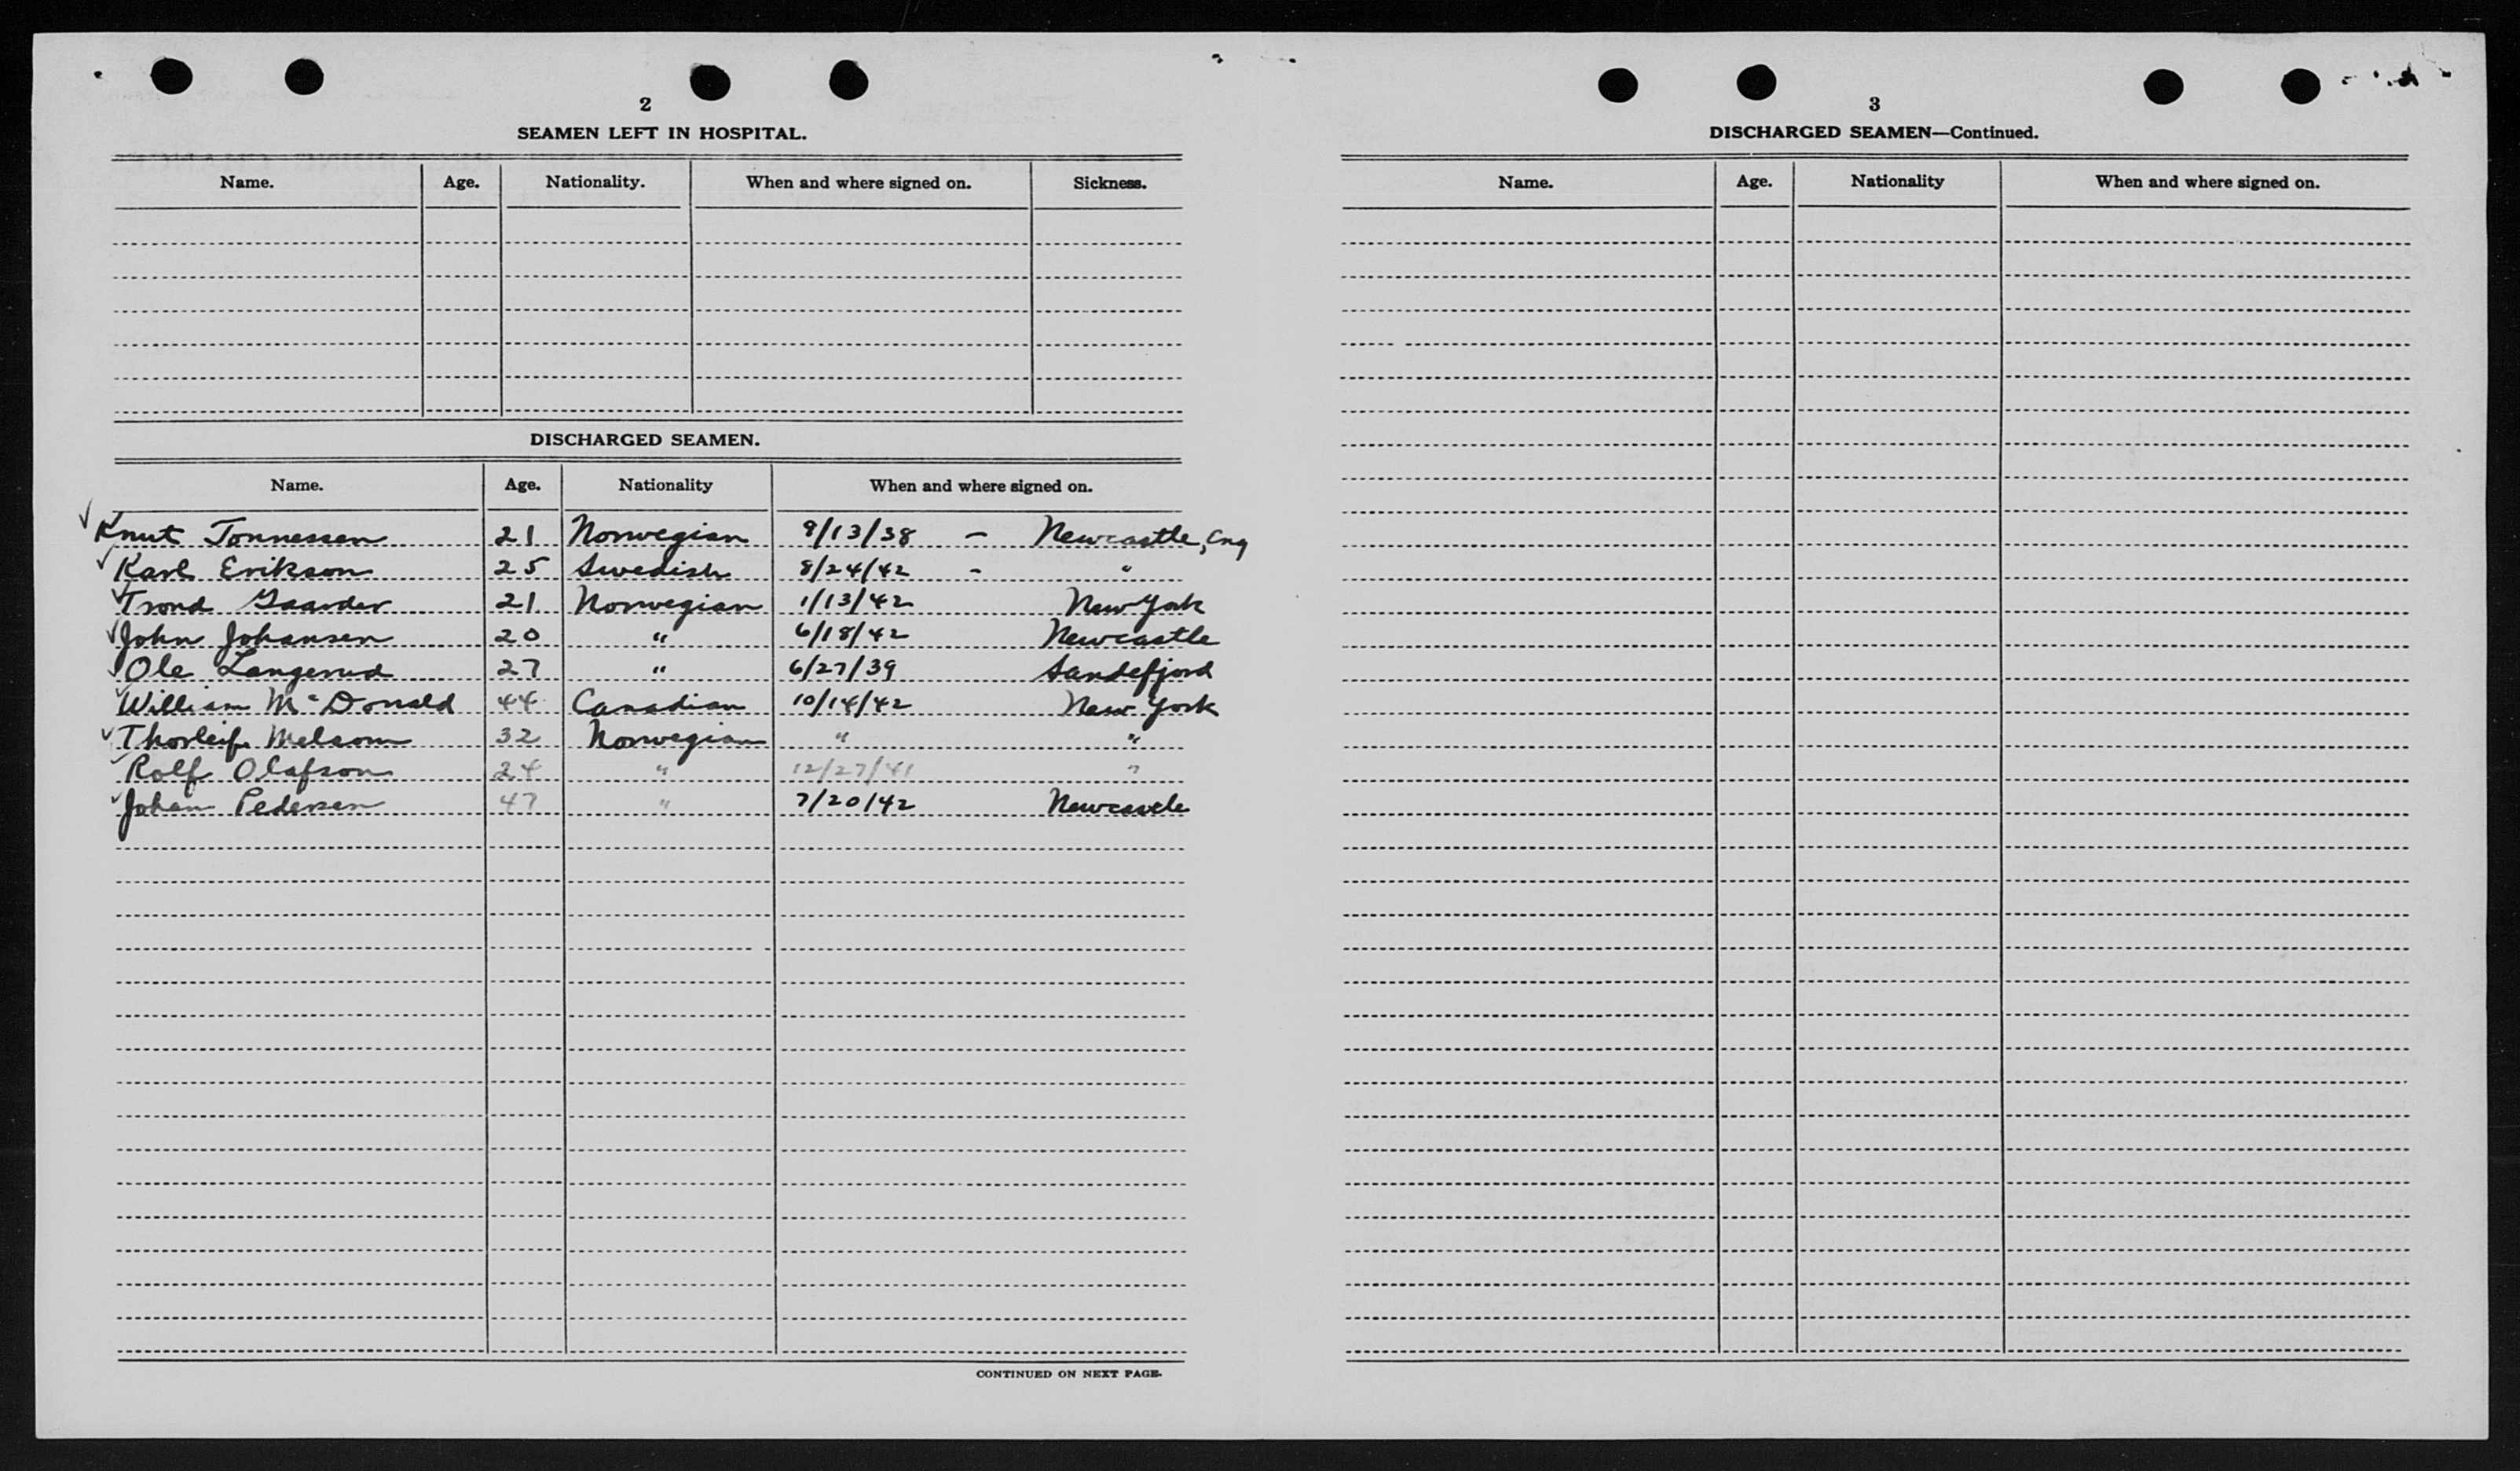 2
SEAMEN LEFT IN HOSPITAL.
Name. Age. Nationality. When and where signed on. Sickness.
DISCHARGED SEAMEN.
Name. Age. Nationality When and where signed on.
✓ Knut Tonnessen 21 Norwegian 9/13/38 - Newcastle, Eng
✓ Karl Erikson 25 Swedish 8/24/42 - "
✓ Trond Gaarder 21 Norwegian 1/13/42 New York
✓ John Johansen 20 " 6/18/42 Newcastle
✓ Ole Langerud 27 " 6/27/39 Sandefjord
✓ William McDonald 44 Canadian 10/14/42 New York
✓ Thorleif Melsom 32 Norwegian " "
✓ Rolf Olafson 24 " 12/27/41 "
✓ Johan Pedersen 47 " 7/20/42 Newcastle
CONTINUED ON NEXT PAGE.
3
DISCHARGED SEAMEN—Continued.
Name. Age. Nationality When and where signed on.